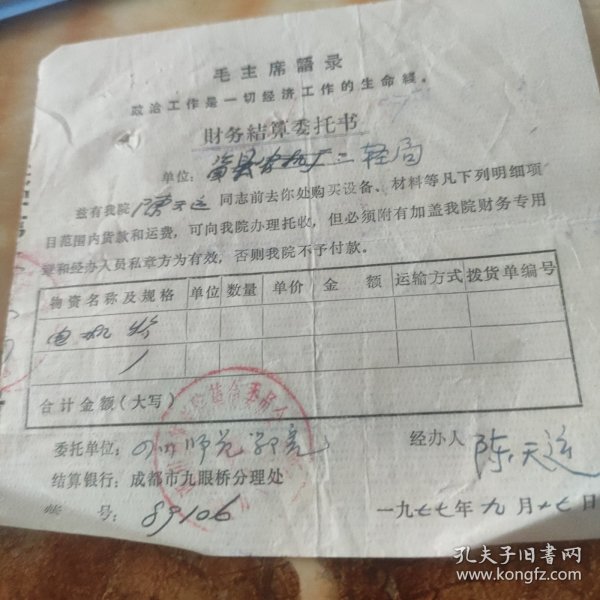 毛主席語录
政治工作是一切经济工作的生命綫。
財务結算委托书
单位: 二轻局
兹有我院陈天运同志前去你处购买设备、材料等凡下列明细项
目范围内货款和运费,可向我院办理托收,但必须附有加盖我院财务专用
章和经办人员私章方为有效,否则我院不予付款。
物资名称及规格 单位 数量 单价 金 额 运输方式 拨货单编号
电机
合计金额(大写)
委托单位: 四川师范学院 经办人 陈天运
结算银行: 成都市九眼桥分理处
帐 号: 89106 一九七七年九月十七日
孔夫子旧书网
www.kongfz.com